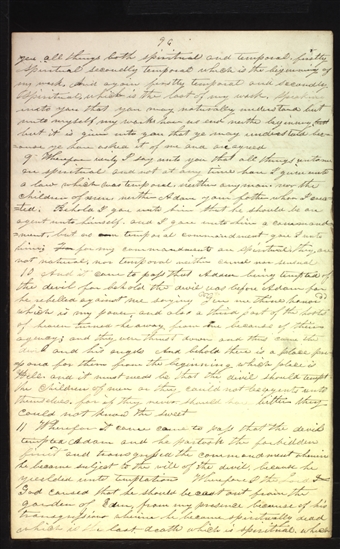 96
yea all things both spiritual and temporal, firstly
spiritual secondly temporal which is the beginning of
my work And again firstly temporal and secondly
spiritual which is the last of my work, speaking
unto you that you may naturally understand but
unto myself my works have no end neither beginning
but it is given unto you that ye may understand be-
cause ye have asked it of me and are agreed
9 Wherefore verily I say unto you that all things unto me
are spiritual and not at any time have I given unto
a law which was temporal neither any man nor the
children of men neither Adam your father whom I crea-
ted. Behold I gave unto him that he should be an
agent unto himself, and I gave unto him a command-
ment, but no temporal commandment gave I unto
him; for my commandments are spiritual they are
not natural, nor temporal neither carnal nor sensual
10 And it came to pass that Adam being tempted of
the devil for behold the devil was before Adam for
he rebelled against me saying Give me thine honor
which is my power, and also a third part of the hosts
of heaven turned he away from me because of their
agency; and they were thrust down and thus came the
and his angels And behold there is a place pre-
pared for them from the beginning which place is
Hell and it must needs be that the devil should tempt
the children of men or they could not be agents unto
themselves, for if they never should bitter they
could not know the sweet
11 Wherefore it came to pass that the devil
tempted Adam and he partook the forbidden
fruit and transgressed the commandment wherein
he became subject to the will of the devil, because he
yielded unto temptation Wherefore I the I
God caused that he should be cast out from the
garden of Eden, from my presence because of his
transgression wherein he became spiritually dead
which is the last death which is spiritual which